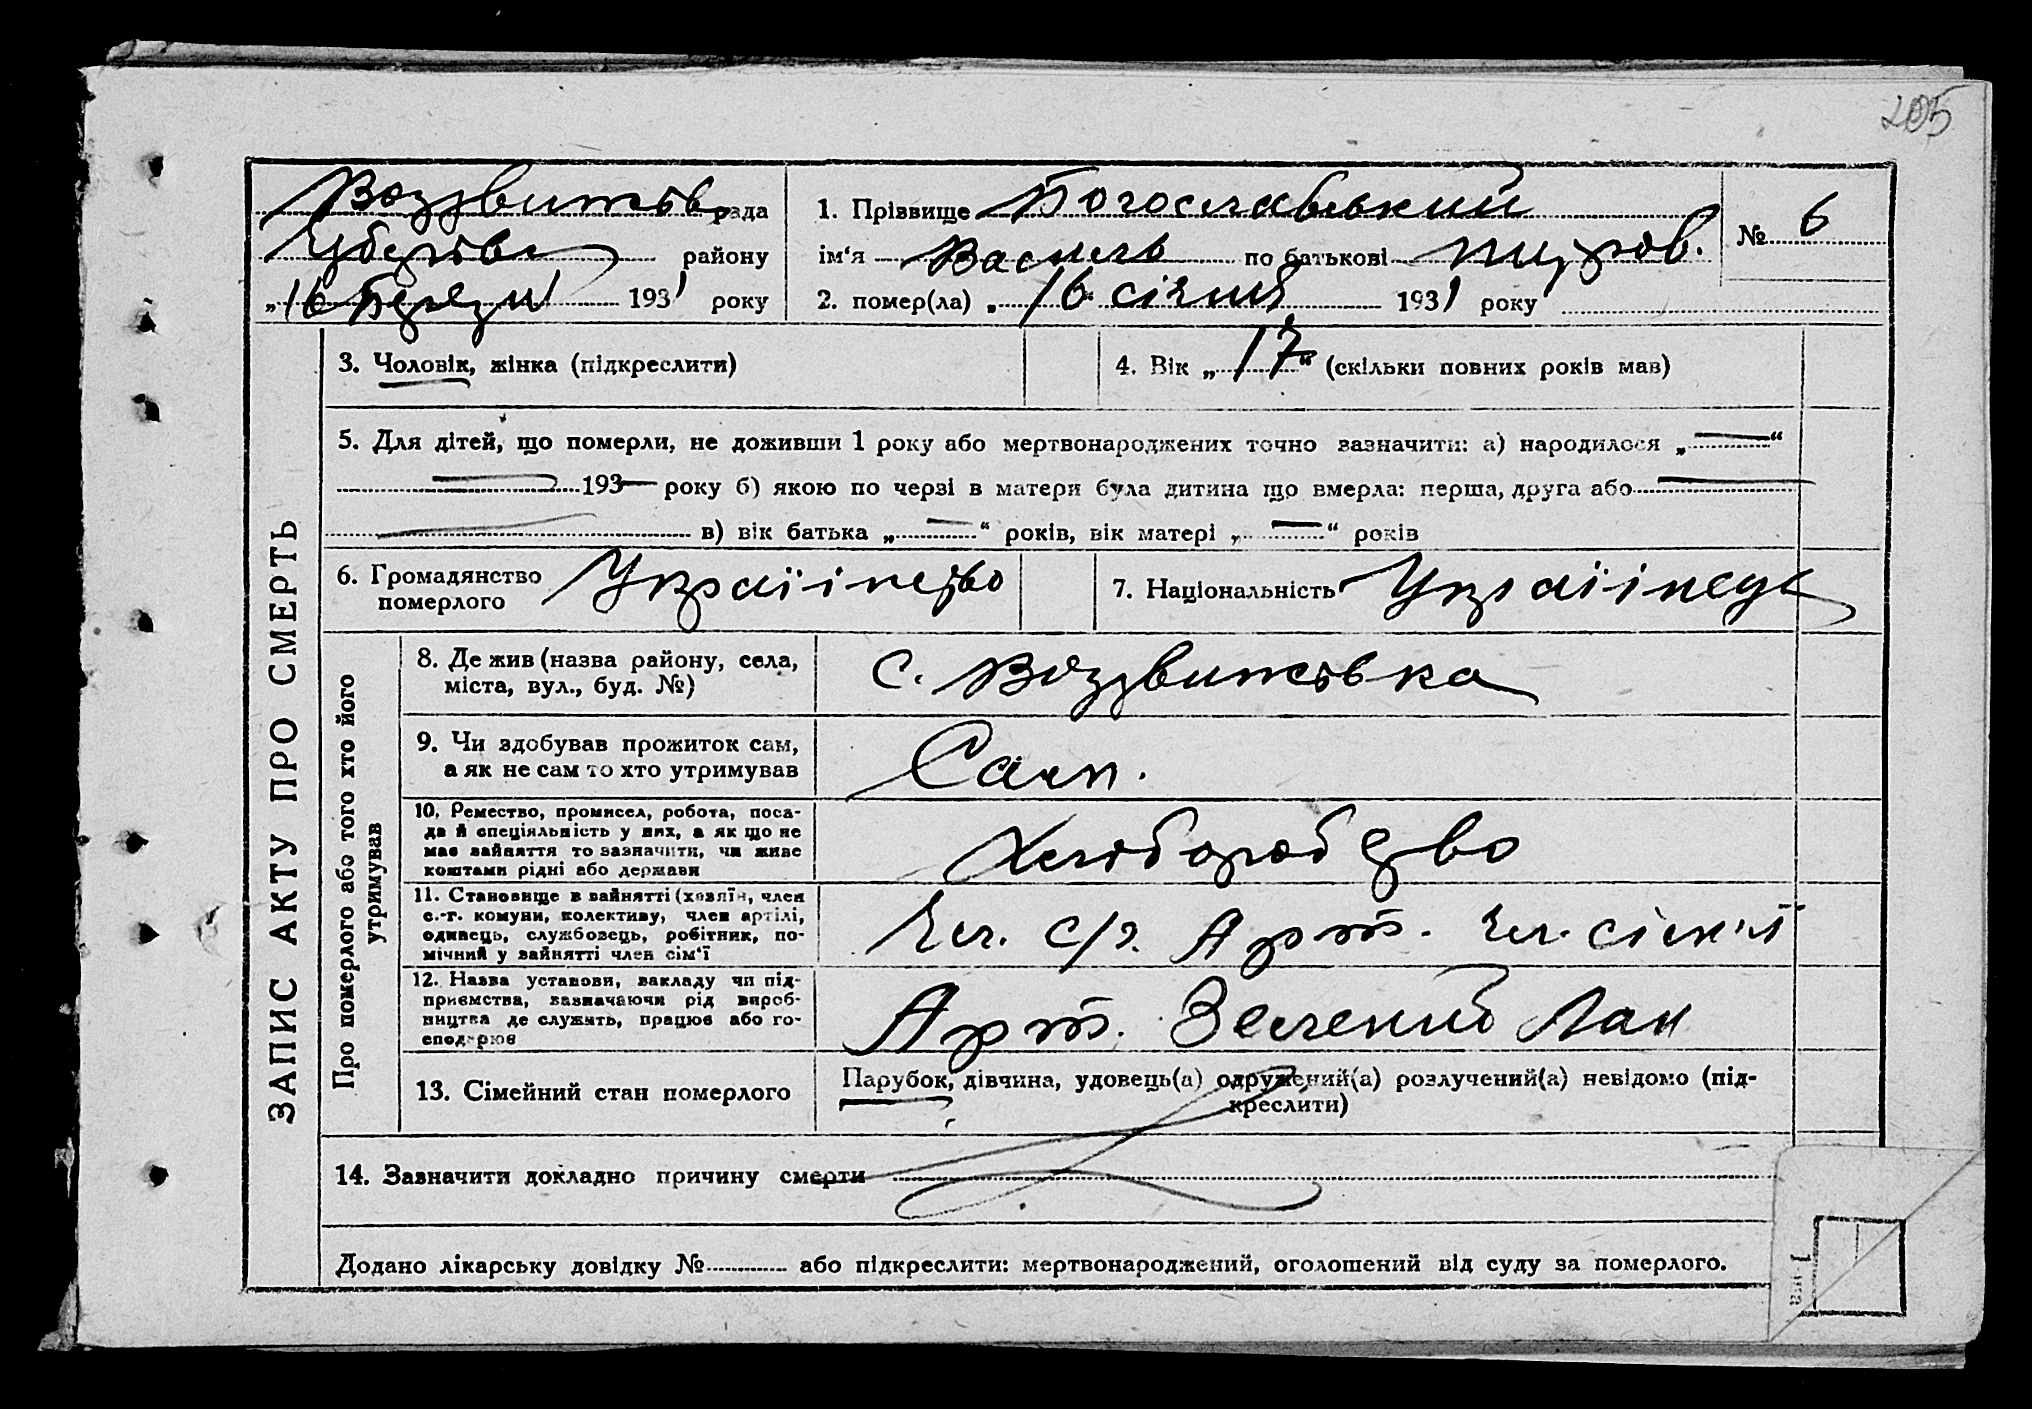 205
Воздвижів. рада
1. Пріввище Богославський
№ 6
району
ім'я Василь по батькові
„16 1931 року
2. помер(ла) „16“ січня 1931 року
ЗАПИС АКТУ ПРО СМЕРТЬ
3. Чоловік, жінка (підкреслити)
4. Вік „17“ (скільки повних років мав)
5. Для дітей, що померли, не доживши 1 року або мертвонароджених точно зазначити: а) народилося „—“
— 193— року б) якою по черзі в матери була дитина що вмерла: перша, друга або —
— в) вік батька „—“ років, вік матері „—“ років
6. Громадянство
померлого
Україінство
7. Національність Україінець
Про померлого або того хто його
утримував
8. Де жив (назва району, села,
міста, вул., буд. №)
с. Воздвижівка
9. Чи здобував прожиток сам,
а як не сам то хто утримував
Сам.
10. Ремество, промисел, робота, поса-
да й спеціяльність у них, а як що не
має зайняття то зазначити, чи живе
коштами рідні або держави
Хліборобство
11. Становище в зайнятті (хазяїн, член
с.-г. комуни, колективу, член артілі,
одинець, службовець, робітник, по-
мічний у зайнятті член сім'ї
Чл. с/г. Арт. Чл. сімʼї
12. Назва установи, закладу чи під-
приємства, зазначаючи рід вироб-
ництва де служить, працює або го-
сподарює
Арт. Зелений Лан
13. Сімейний стан померлого
Парубок, дівчина, удовець(а) одружений(а) розлучений(а) невідомо (під-
креслити)
14. Зазначити докладно причину смерти
Додано лікарську довідку № або підкреслити: мертвонароджений, оголошений від суду за померлого.